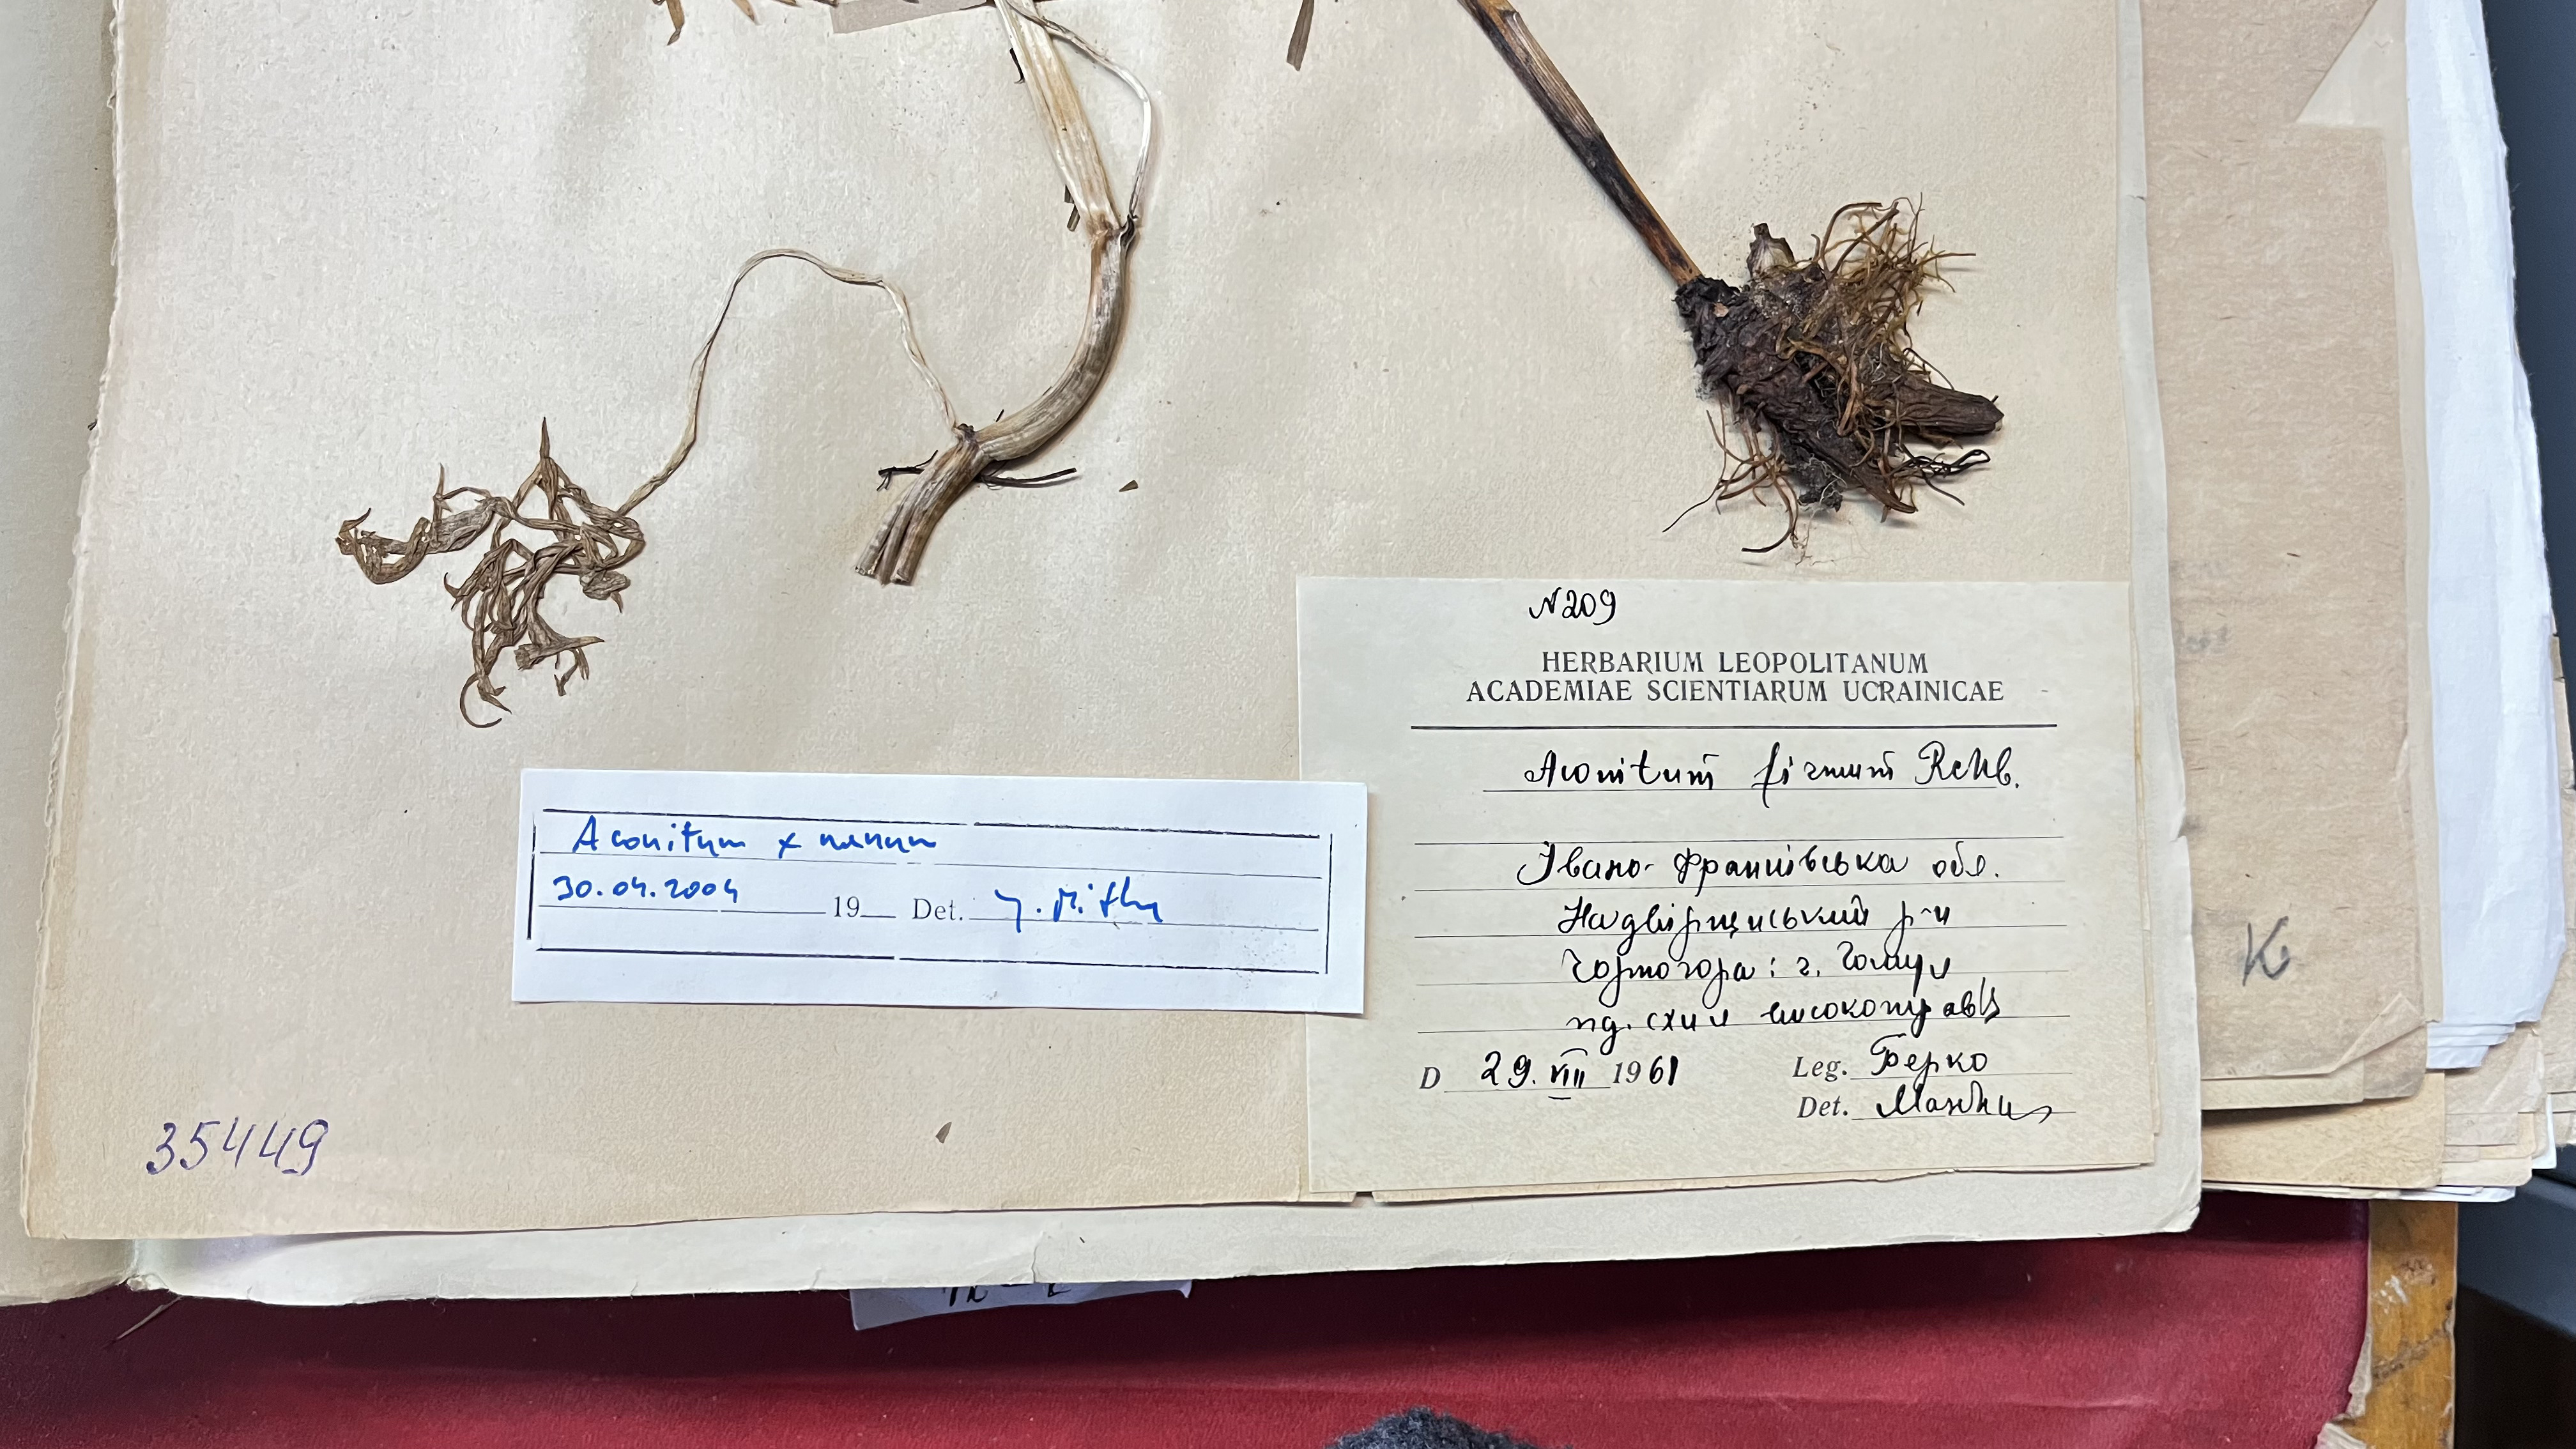 N209
HERBARIUM LEOPOLITANUM
ACADEMIAE SCIENTIARUM UCRAINICAE
Aconitum firmum Rchb.
Івано-Франківська обл.
Надвірнянський р-н
Чорногора: г. Гомул
пд. схил високотравʼя
D 29. VIII 1961
Leg. Берко
Det.
Aconitum x nanum
30.04.2004 19 Det. J. Mitka
35449
K